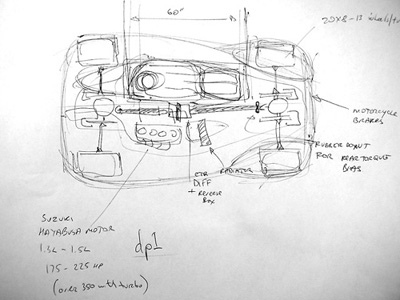 60"
20x8-13 wheel/
MOTORCYCLE
BRAKES
RUBBER DONUT
FOR REAR TORQUE
BIAS
RADIATOR
CTR
DIFF
+ REVERSE
BOX
SUZUKI
HAYABUSA MOTOR
1.3L - 1.5L
175 - 225 HP
(over 350 with turbo)
dp1